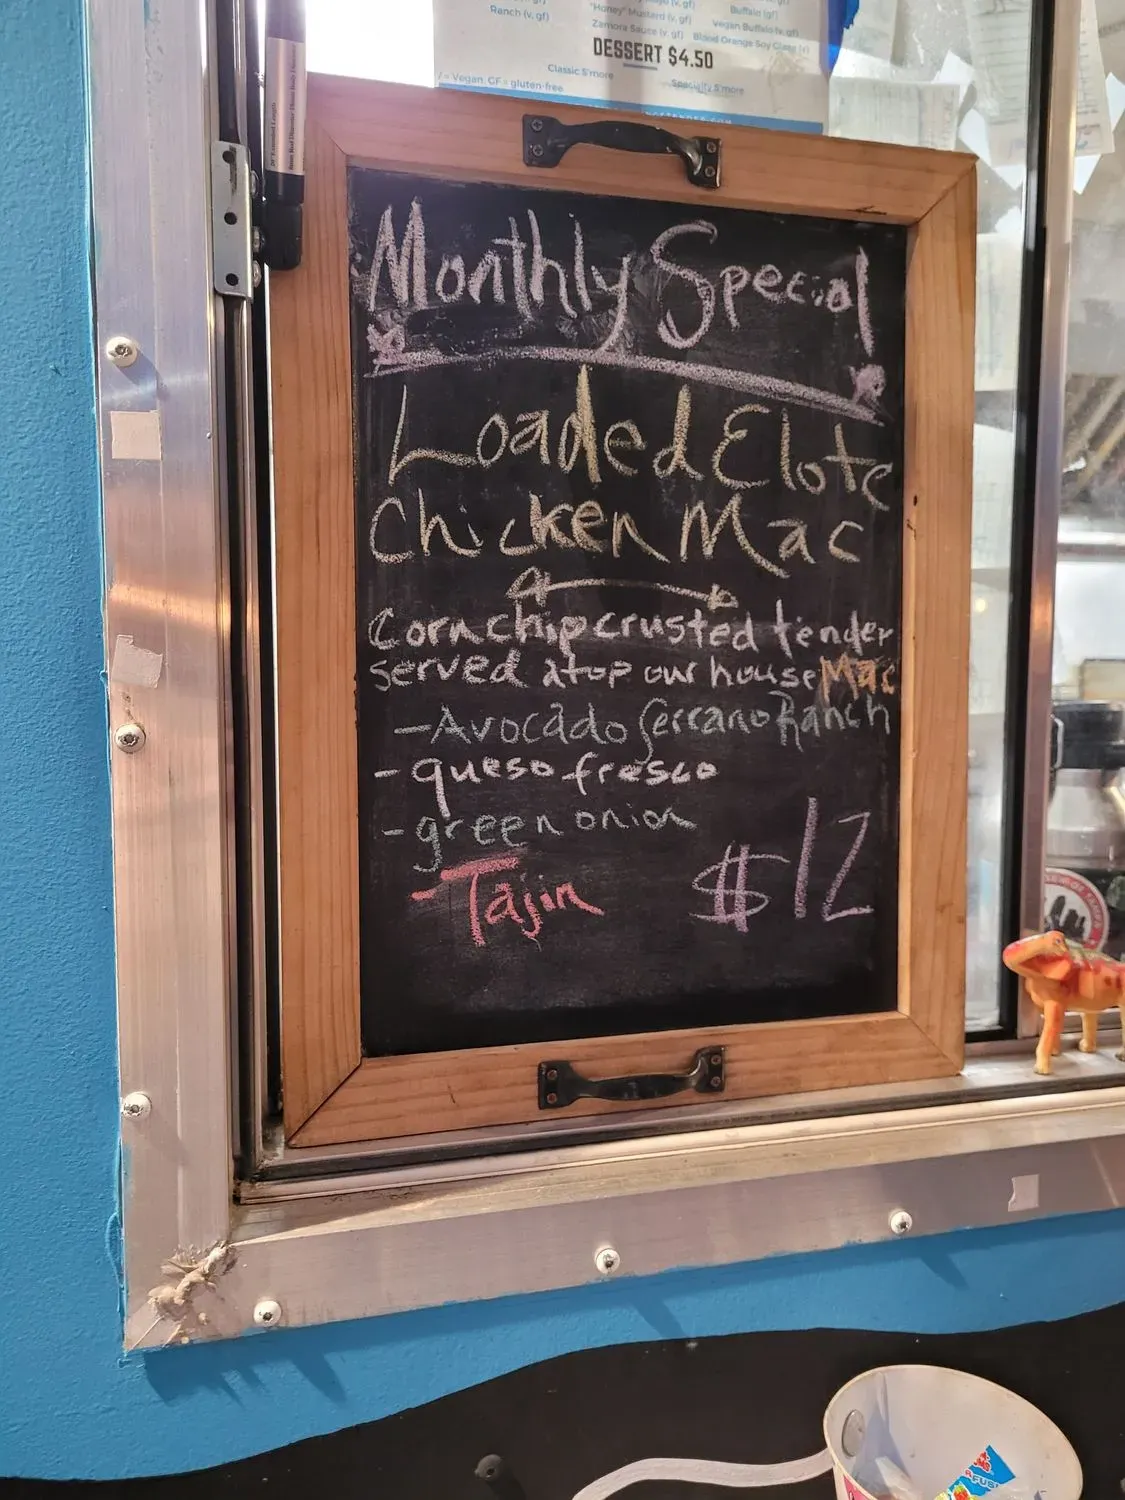 Ranch (v, gf)
"Honey" Mustard (v, gf)
Zamora Sauce (v, gf)
Buffalo (gf)
Vegan Buffalo (v, gf)
Blood Orange Soy Glaze (v)
DESSERT $4.50
Classic S'more
Specialty S'more
= Vegan, GF = gluten-free
Monthly Special
Loaded Elote
Chicken Mac
Corn chip crusted tender
served atop our house Mac
- Avocado Serrano Ranch
- queso fresco
- green onion
- Tajin
$12